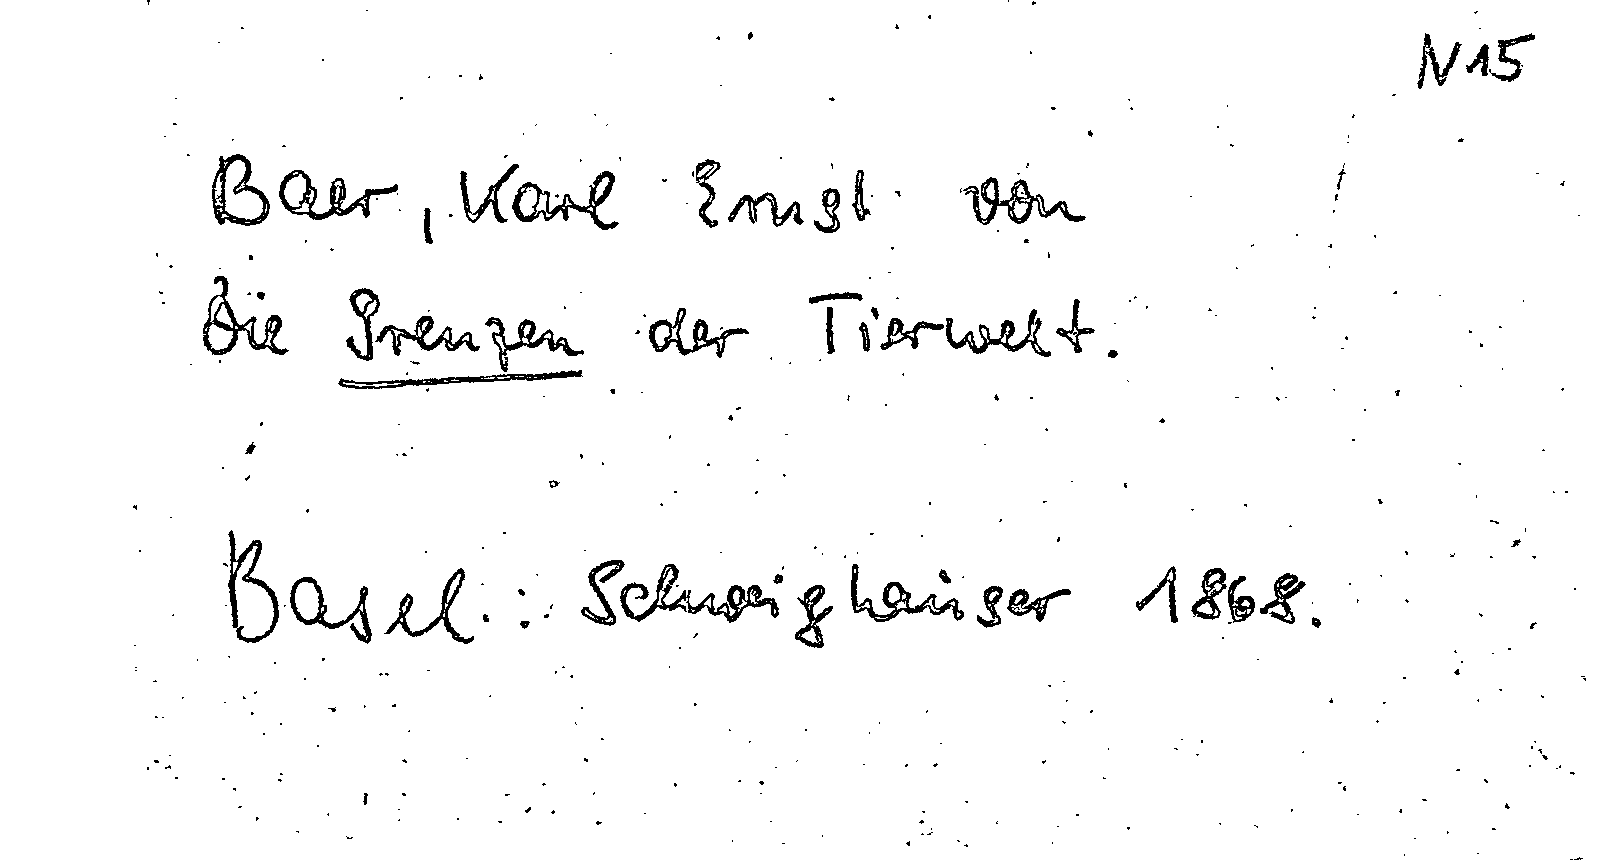 N15
Baer, Karl Ernst von
Die Grenzen der Tierwelt.
Basel: Schweighauser 1868.